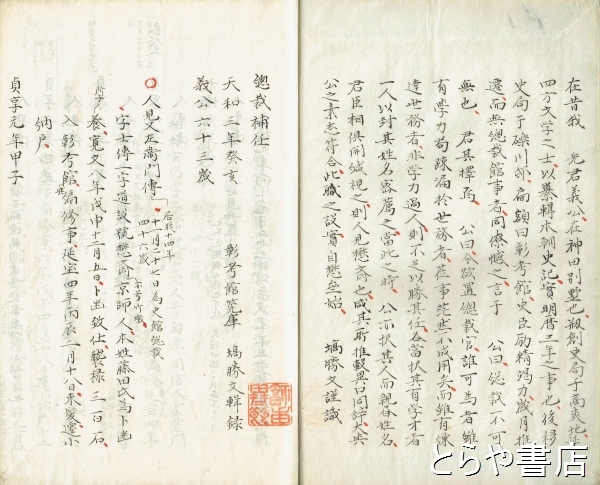 在昔我 光君義公在神田別墅也創史局于高爽地
四方文学之士以纂輯本朝史記實明暦三年之事也後移
史局于礫川邸扁額曰彰考館史臣励精竭力歳月推
遷而無総裁館事者同僚憾之言于 公曰総裁不可
無也 君其擇焉 公曰今欲置総裁官誰可為者雖
有学力苟疎漏於世務者庶事茫然不成用矣而雖有練
達世務者非学力過人則不足以勝其任各當択其有学才者
一人以封其姓名密薦之當此之時 公亦択其人而親書姓名
君臣相倶開緘視之則人見懋斎也咸其所推数異口同辞大與
公之素志符合此職之設實自懋斎始
塙勝文謹識
總裁補任
天和三年癸亥 彰考館寛庫 塙勝文輯録
義公六十三歳
人見又左衛門傳 十一月二十七日為史館総裁
四十六歳
字士傳一字道設號懋斎京師人本姓藤田氏為卜幽
養寛文八年戊申十二月五日卜幽致仕賜禄三百石
入彰考館編修事延宝四年丙辰二月十八日束髪遷小
納戸
貞享元年甲子
とらや書店